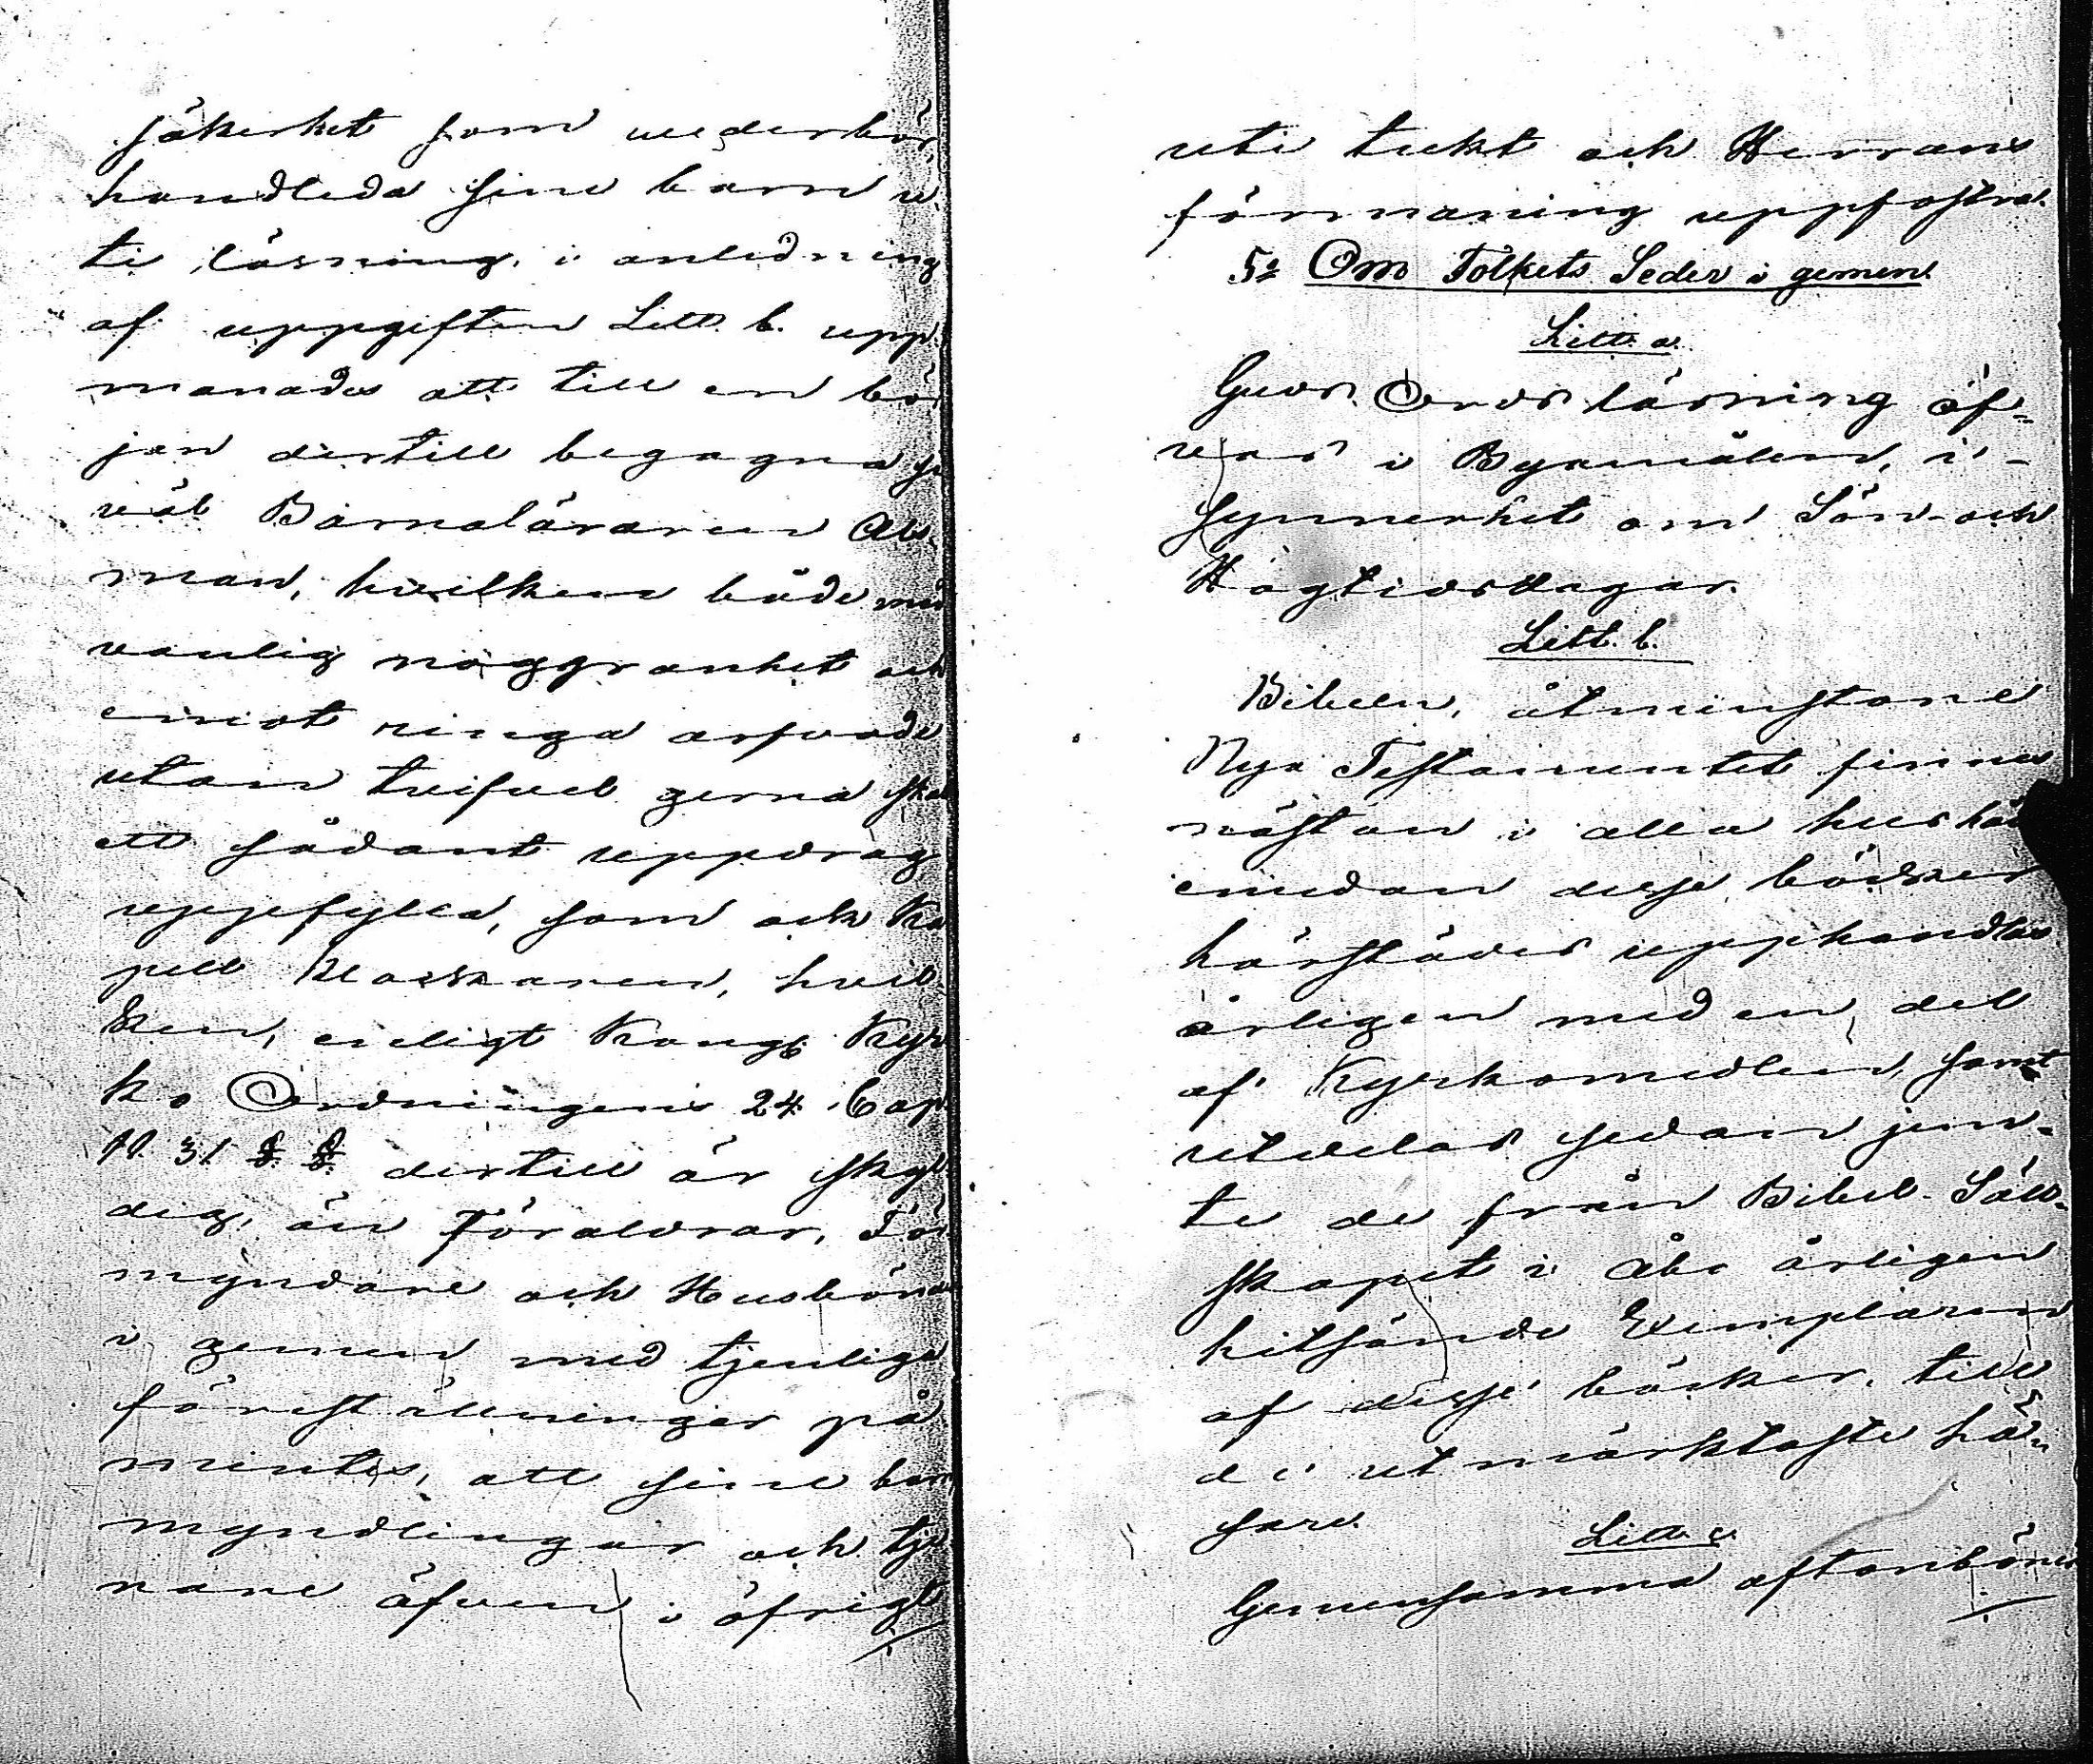 säkerhet som vederbör
handleda sine barn u
ti läsning, i anledning
af uppgiften Litt. b. upp
manades att till en bör
jan dertill begagna så
väl Barnaläraren
man, hvilken både med
vanlig noggranhet och
emot ringa arfvode
utan tvifvel gerna skal
ett sådant uppdrag
uppfylla, som ock Ka
pell Klockaren, hvil
ken, enligt Kongl. Kyr
ko Ordningens 24. Cap.
11. 31 §. §. dertill är skyl
dig, än Föräldrar, För
myndare och Husbönd
i gemen med tjenliga
föreställningar på
mintes, att sine barn
myndlingar och tje
nare äfven i öfrigt
uti tuckt och Herrans
förmaning uppfostra.
5o Om Folkets Seder i gemen.
Litt. a.
Guds Ords läsning öf-
vas i Byamålen, i-
synnerhet om Sön- och
Högtidsdagar.
Litt. b.
Bibeln, åtminstone
Nya Testamentet finnes
nästan i alla hushåll
emedan desse böcker
härstädes upphandlas
årligen med en del
af Kyrkomedlen, samt
utdelas sedan jem-
te de från Bibel-Säll-
skapet i Åbo årligen
hitsände Exemplaren
af desse böcker, till
de utmärktaste lä-
sare.
Litt. c.
Gemensamma aftonböner